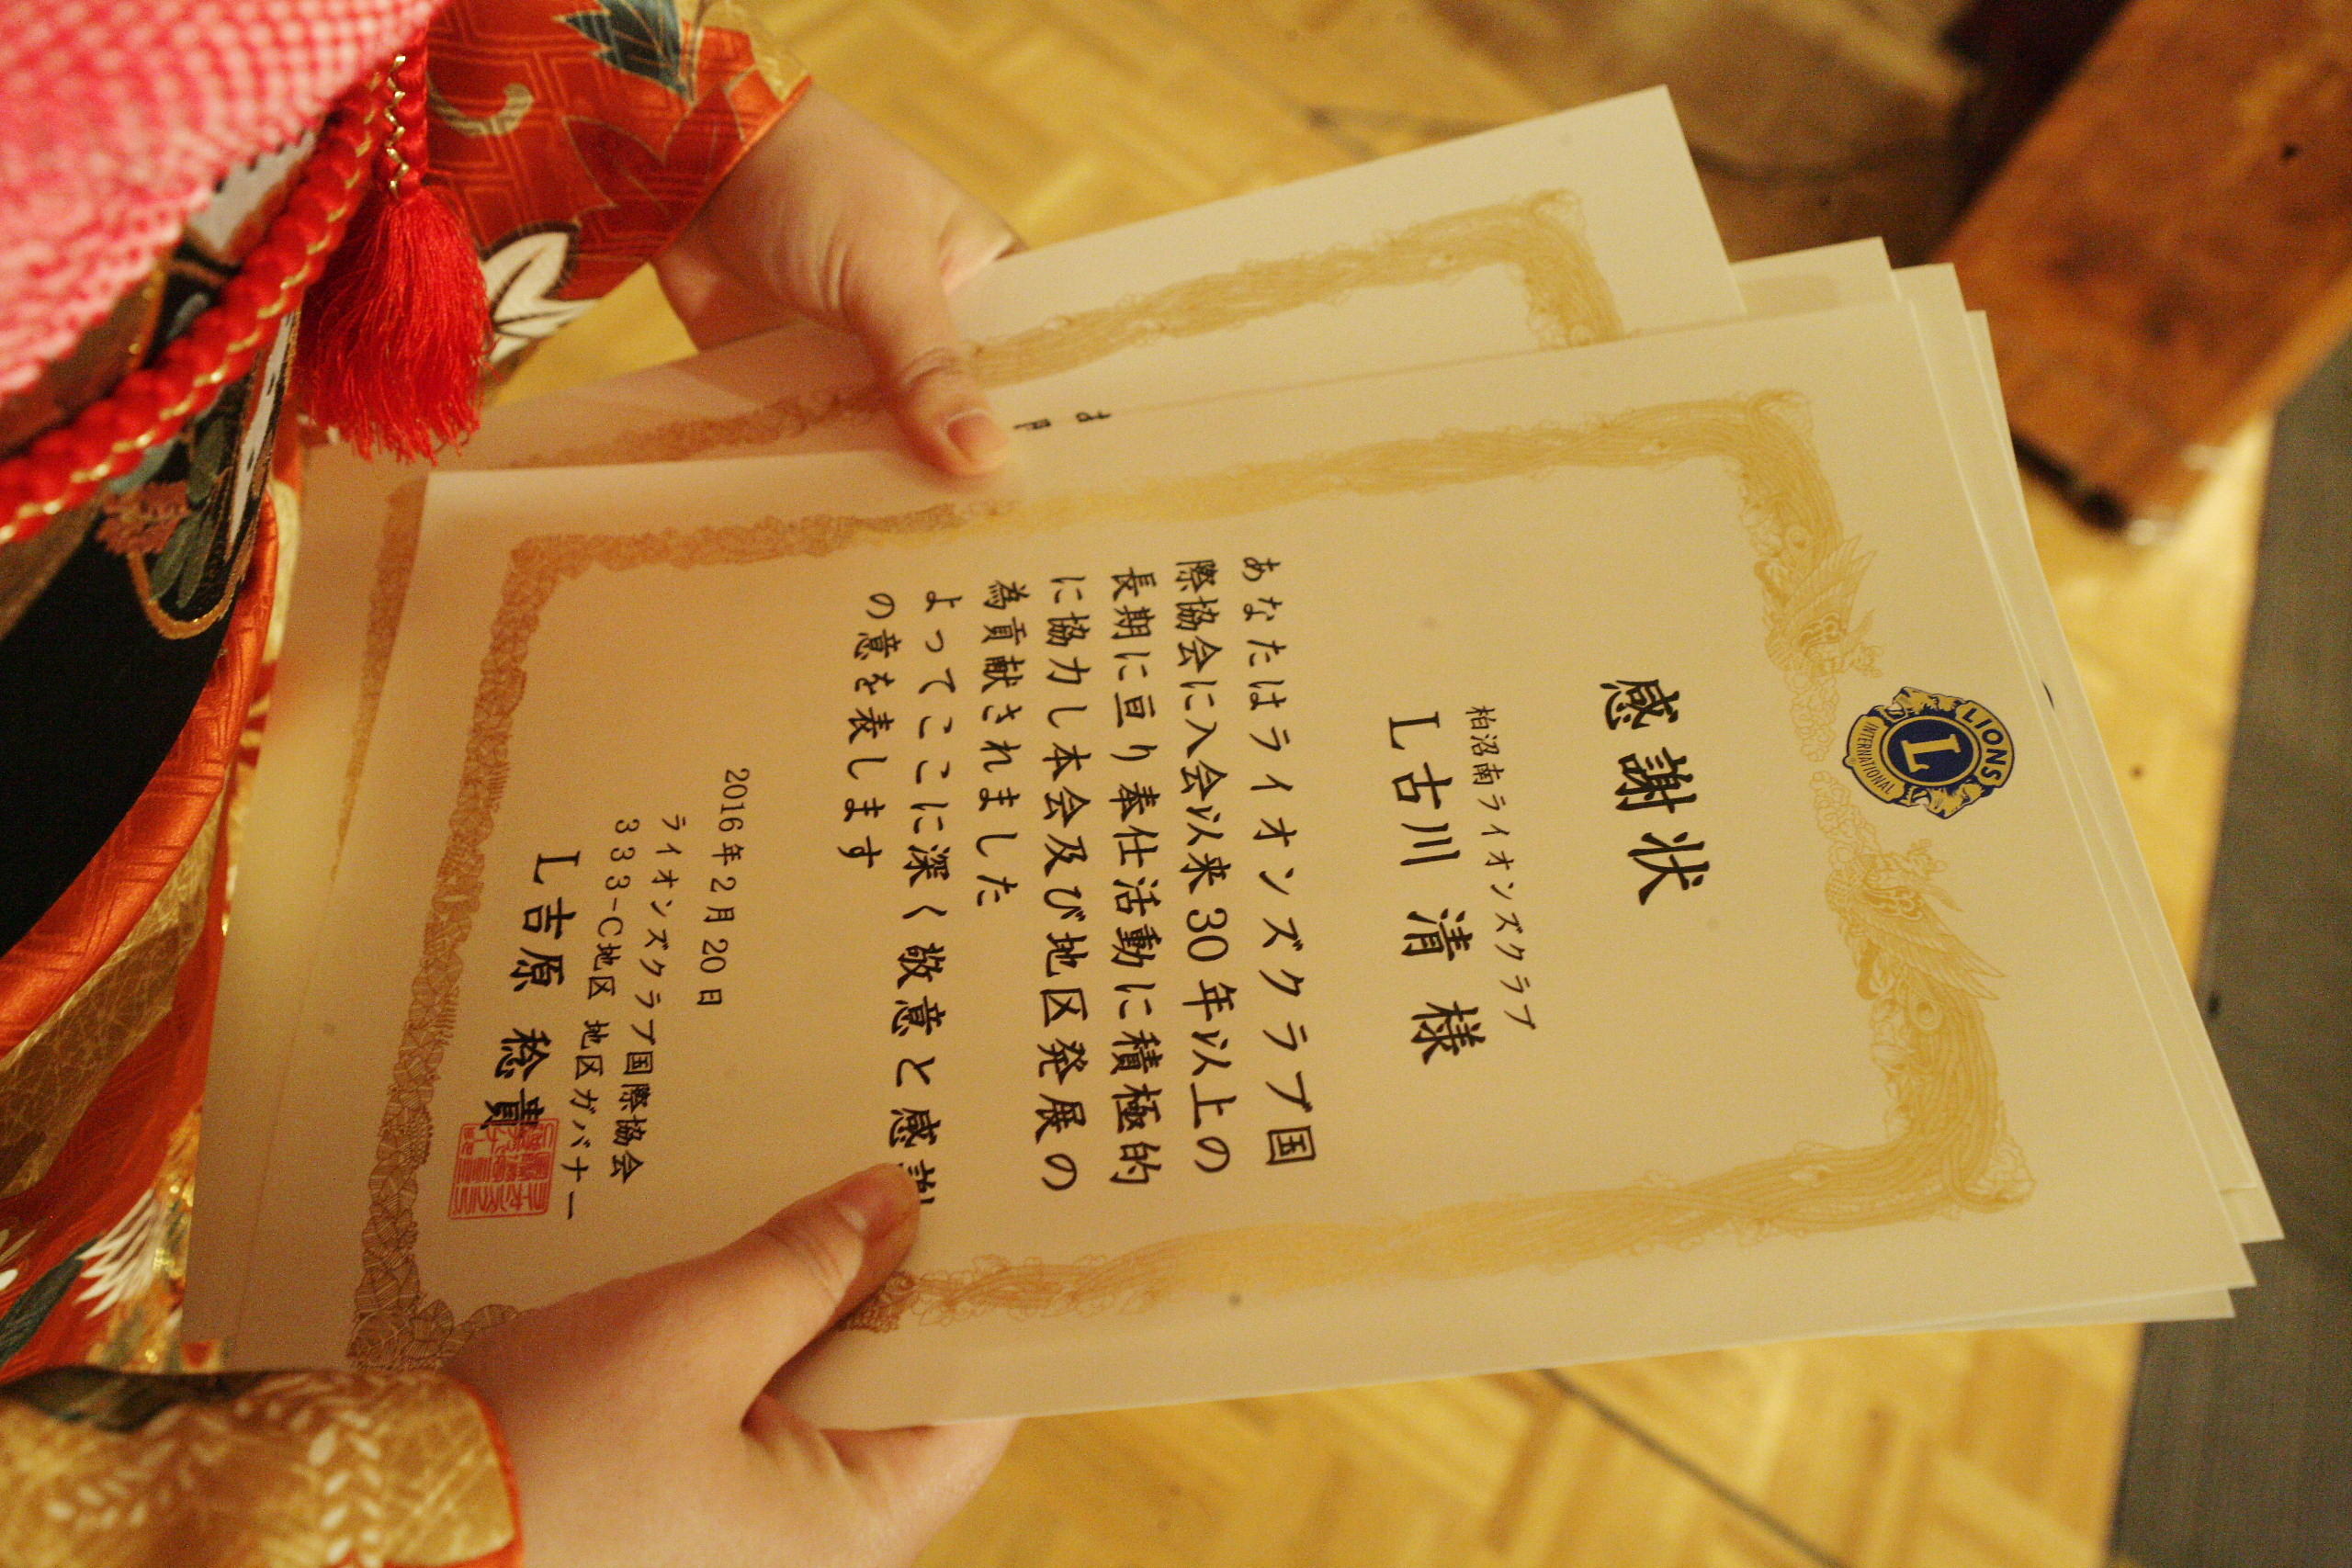 LIONS
L
INTERNATIONAL
感謝状
柏沼南ライオンズクラブ
L古川 清 様
あなたはライオンズクラブ国
際協会に入会以来30年以上の
長期に亘り奉仕活動に積極的
に協力し本会及び地区発展の
為貢献されました
よってここに深く敬意と感謝
の意を表します
2016年2月20日
ライオンズクラブ国際協会
333-C地区 地区ガバナー
L吉原 稔貴